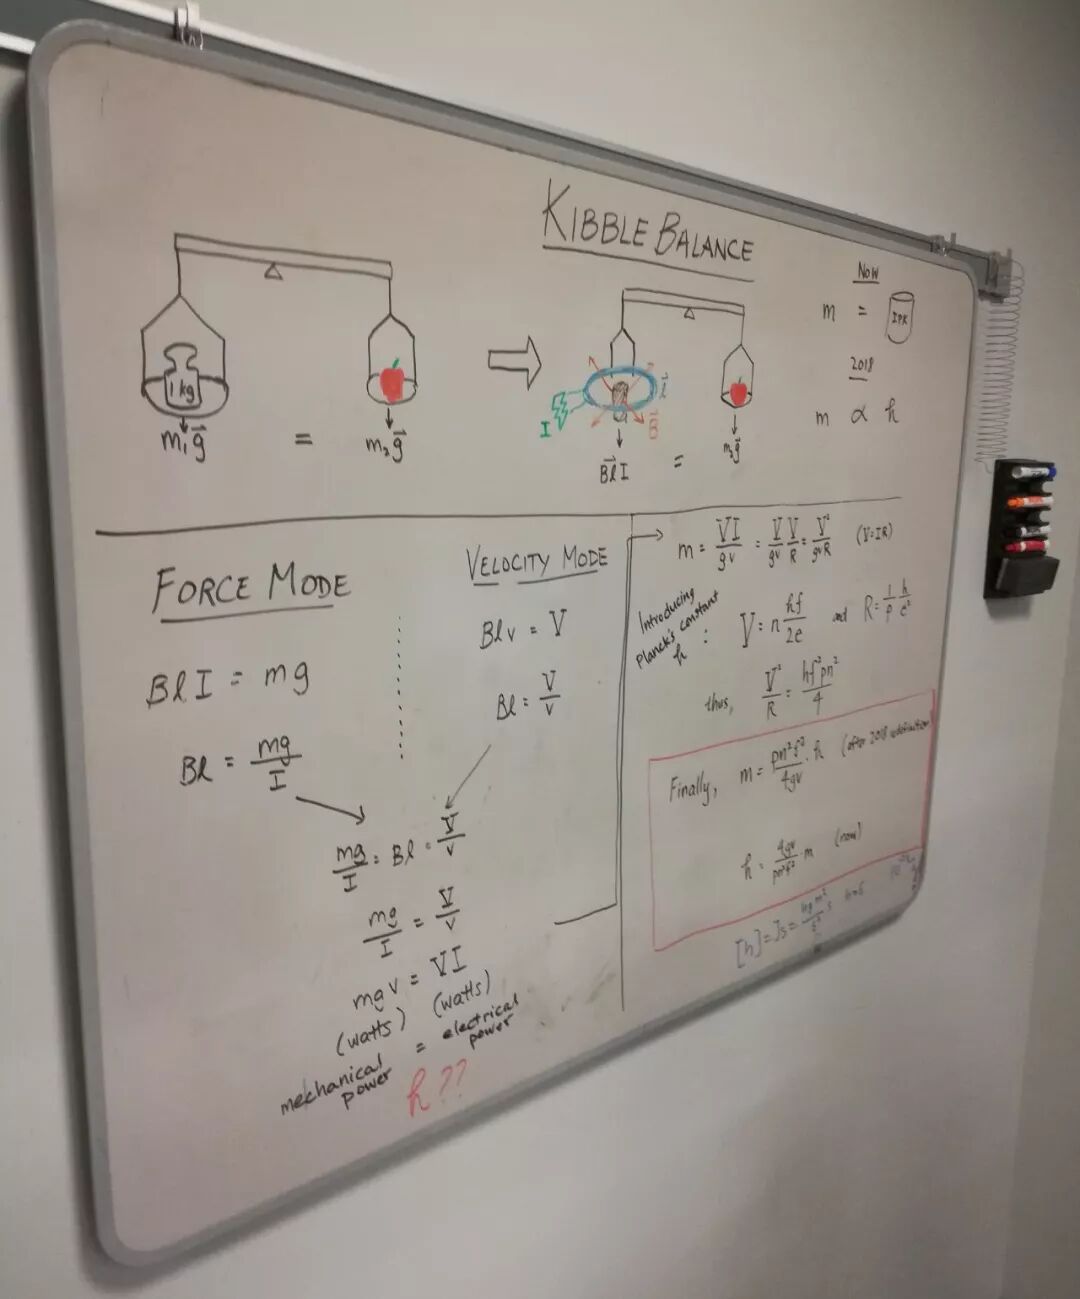 KIBBLE BALANCE
1 kg
m₁g⃗ = m₂g⃗
I
l⃗
B⃗
B⃗lI = m₂g⃗
Now
m = IPK
2018
m ∝ h
FORCE MODE
BlI = mg
Bl = mg/I
VELOCITY MODE
Blv = V
Bl = V/v
mg/I = Bl = V/v
mg/I = V/v
mgv = VI
(watts) (watts)
mechanical power = electrical power
h??
m = VI/gv = V/gv V/R = V²/gvR (V=IR)
Introducing
Planck's constant
h :
V = n hf/2e and R = 1/p h/e²
thus, V²/R = hf²pn²/4
Finally, m = pn²f²/4gv · h (after 2018 redefinition)
h = 4gv/pn²f² · m (now)
[h] = Js = kg m²/s² s